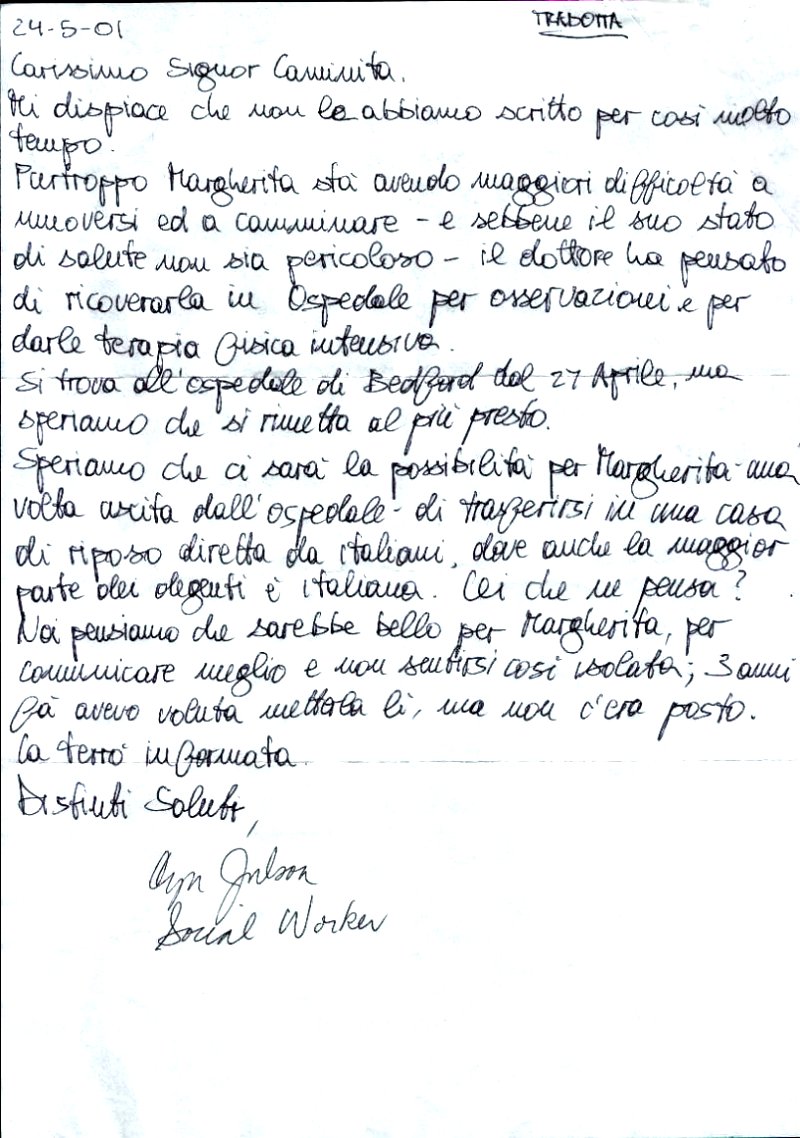 24-5-01
TRADOTTA
Carissimo Signor Caminita.
Mi dispiace che non le abbiamo scritto per così molto
tempo.
Purtroppo Margherita stà avendo maggiori difficoltà a
muoversi ed a camminare - e sebbene il suo stato
di salute non sia pericoloso - il dottore ha pensato
di ricoverarla in Ospedale per osservazioni e per
darle terapia fisica intensiva.
Si trova all'ospedale di Bedford dal 27 Aprile, ma
speriamo che si rimetta al più presto.
Speriamo che ci sarà la possibilità per Margherita - una
volta uscita dall'ospedale - di trasferirsi in una casa
di riposo diretta da italiani, dove anche la maggior
parte dei degenti è italiana. Lei che ne pensa?
Noi pensiamo che sarebbe bello per Margherita, per
comunicare meglio e non sentirsi così isolata; 3 anni
fà avevo voluta metterla lì, ma non c'era posto.
La terrò informata.
Distinti Saluti,
Social Worker